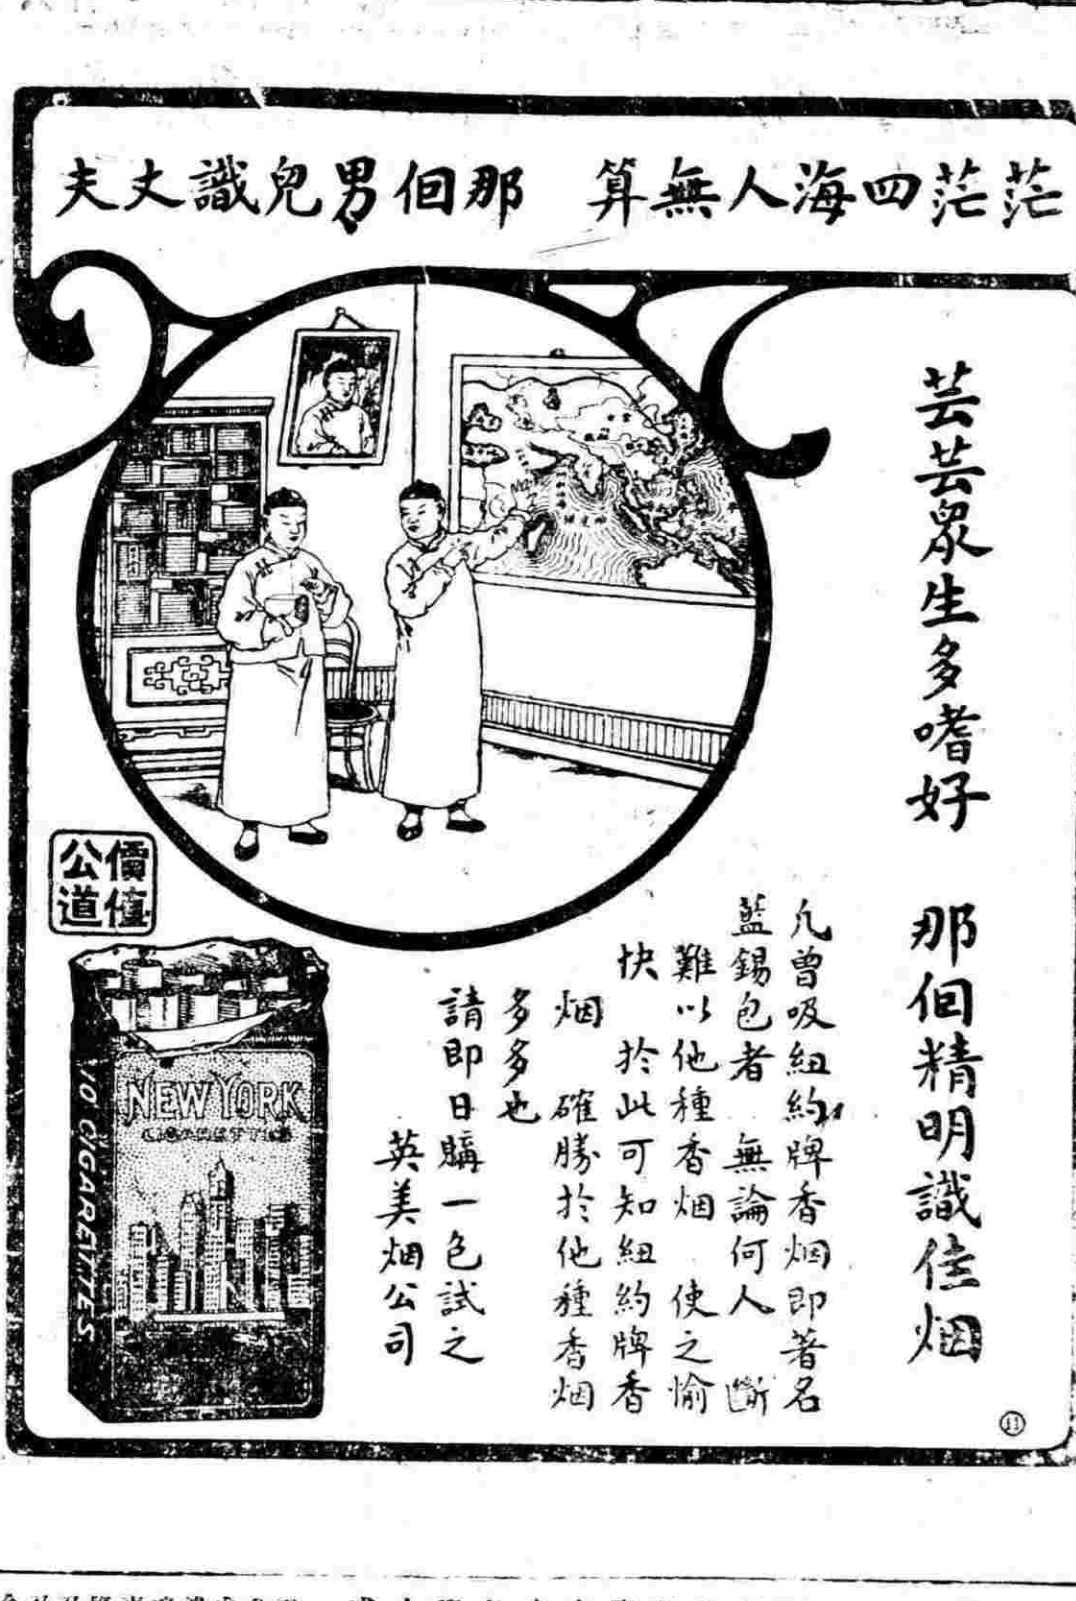 茫茫四海人無算 那個男兒識丈夫
芸芸眾生多嗜好 那個精明識佳烟
凡曾吸紐約牌香烟即著名
藍錫包者 無論何人 斷
難以他種香烟 使之愉
快 於此可知紐約牌香
烟 確勝於他種香烟
多多也
請即日購一包試之
英美烟公司
價值
公道
NEW YORK
CIGARETTES
10 CIGARETTES
11